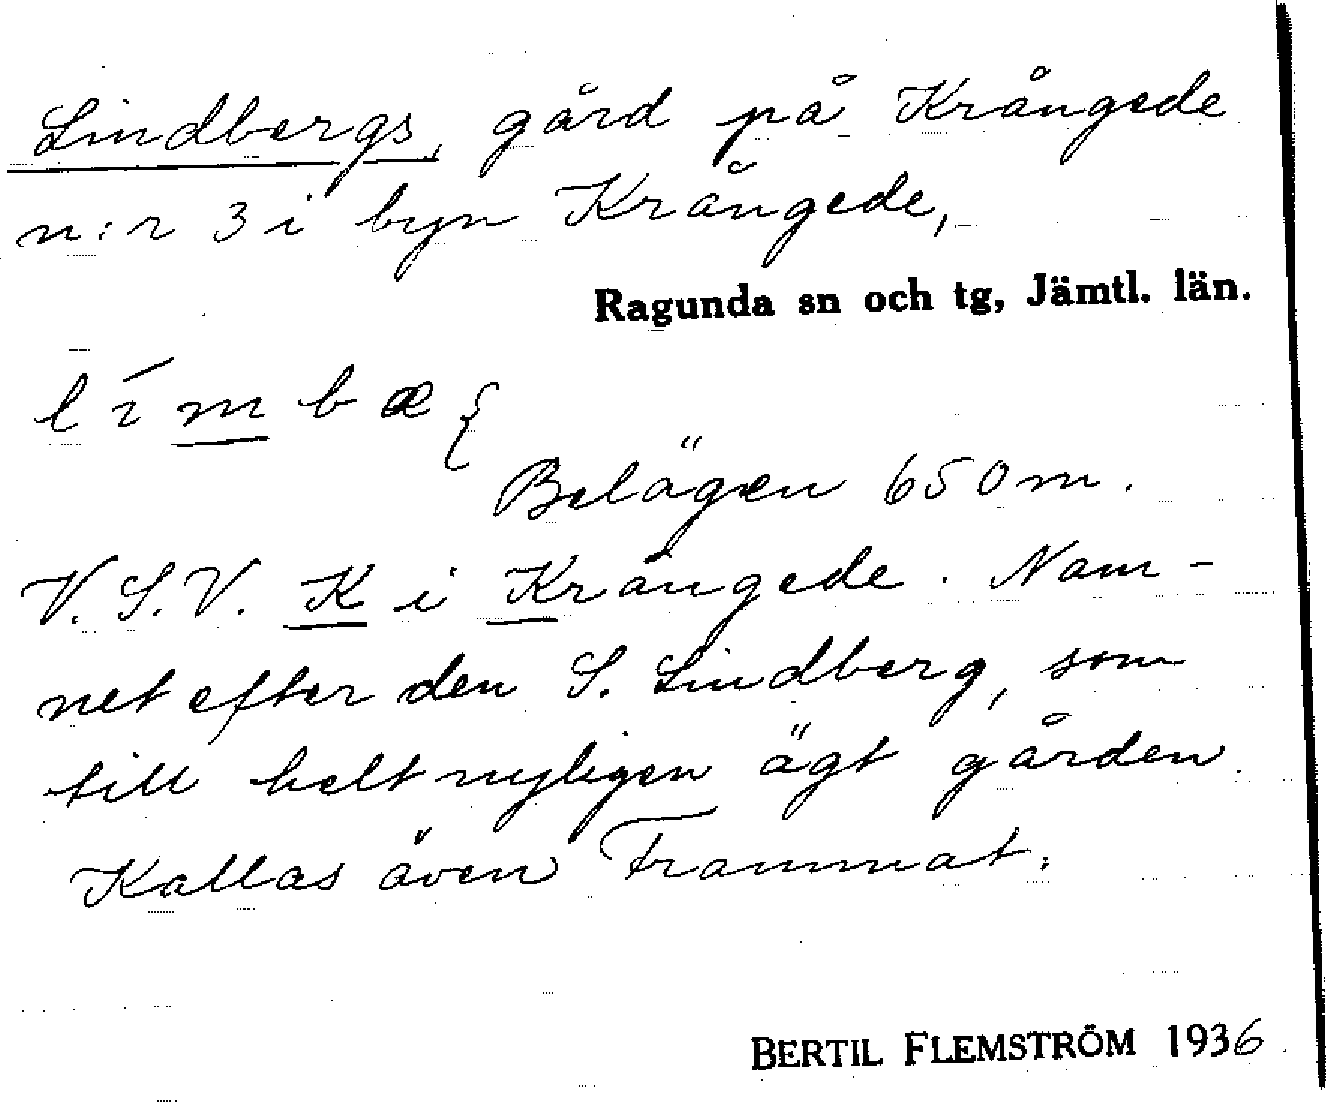 Lindbergs, gård på Krångede
n:r 3 i byn Krångede,
Ragunda sn och tg, Jämtl. län.
Belägen 650 m.
V.S.V. K i Krångede. Nam-
net efter den S. Lindberg, som
till helt nyligen ägt gården.
Kallas även Frammat.
BERTIL FLEMSTRÖM 1936